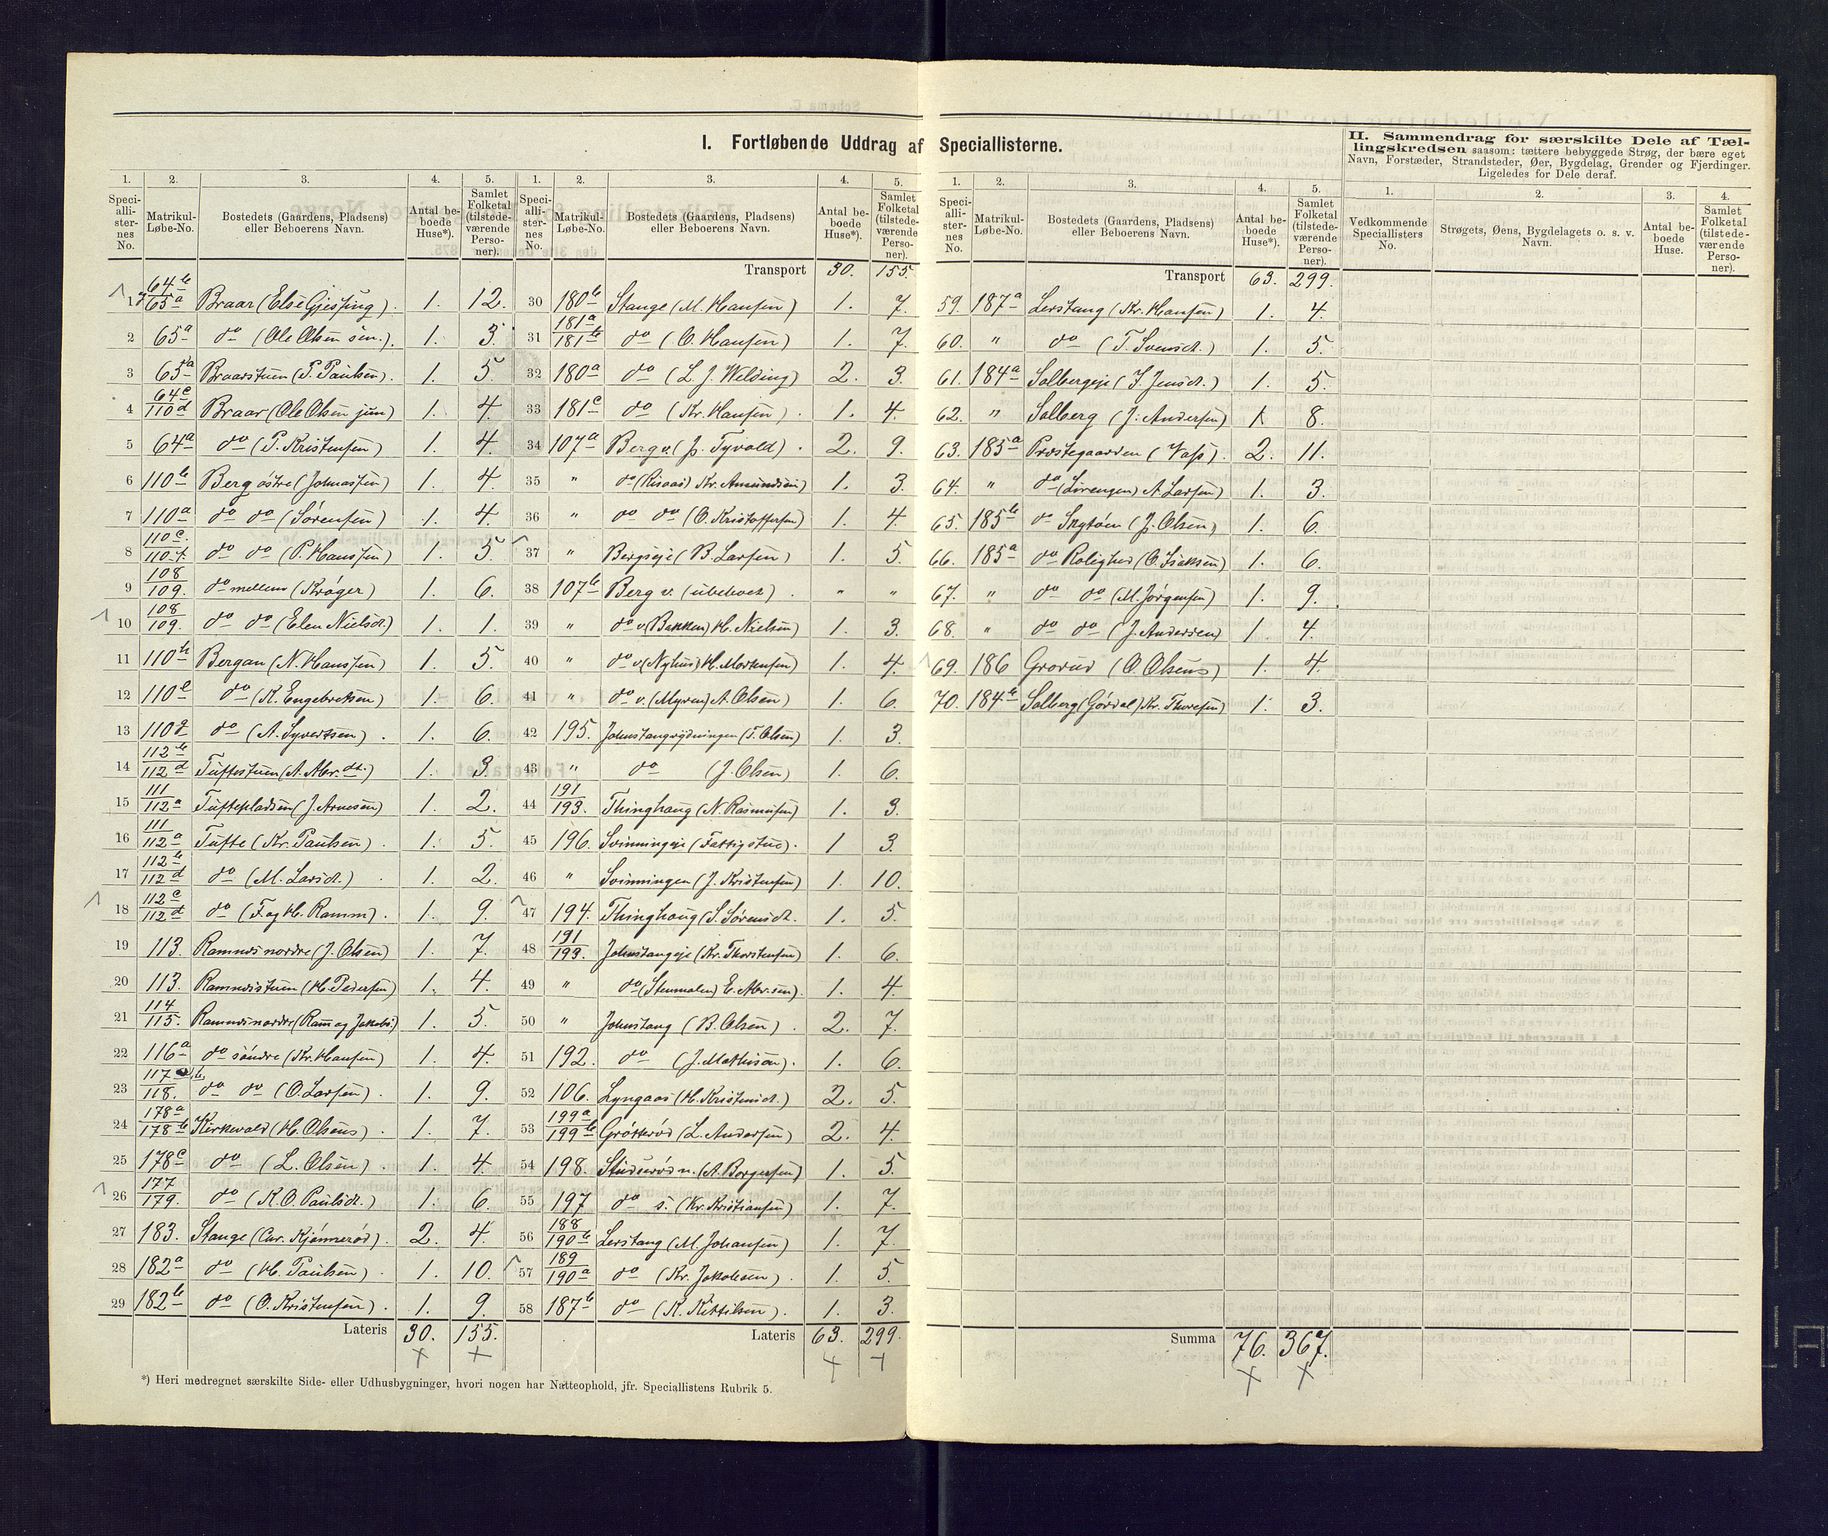 I. Fortløbende Uddrag af Speciallisterne.
1. 2. 3. 4. 5.
Speciallisternes No. Matrikul-Løbe-No. Bostedets (Gaardens, Pladsens) eller Beboerens Navn. Antal beboede Huse*). Samlet Folketal (tilstedeværende Personer).
1 64b/65a Braar (Else Gjessing). 1. 12.
2 65a do (Ole Olsen sen.). 1. 3.
3 65a Braarstuen (P. Paulsen). 1. 5.
4 64c/110d Braar (Ole Olsen jun) 1. 4
5 64a do (P. Kristensen) 1. 4.
6 110b Berg østre (Johnassen) 1. 4
7 110a do do (Sørensen) 1. 4.
8 110c/110f. do do (P. Hanssen) 1. 5
9 108/109. do mellem (Krøger) 1. 6.
10 108/109. do do (Elen Nielsdt.) 1. 1.
11 110h Bergan (N. Hanssen) 1. 5.
12 110e do (K. Engebretsen) 1. 6.
13 110g do (A. Syvertsen) . 1. 6.
14 112b/112d Tuftestuen (A. Abr.dt.) 1. 3.
15 111/112a Tuftepladsen (J. Arnesen) 1. 2.
16 111/112a Tufte (Kr. Paulsen) . 1. 5.
17 112b/112d do (M. Larsdt.) . 1. 2.
18 112c/112d do (F. og H. Ramm). 1. 9.
19 113. Ramnæs nordre (J. Olsen) 1. 7.
20 113. Ramnæsstuen (H. Pedersen) 1. 4.
21 114/115. Ramnæs nordre (Ram og Jakobs.) 1. 5.
22 116a do søndre (Kr. Hansen) 1. 4.
23 117/118. do do (O. Larsen) . 1. 9.
24 178a/178b Kirkevold (H. Olsens) . 1. 7.
25 178c do (L. Olsen) . 1. 4.
26 177/179. do (K. O. Paulsdt.) . 1. 6.
27 183. Stange (Chr. Kjønnerød). 2. 4.
28 182a do (H. Paulsen) . 1. 10.
29 182b do (O. Kristensen) . 1. 9.
Lateris 30. 155.
1. 2. 3. 4. 5.
Speciallisternes No. Matrikul-Løbe-No. Bostedets (Gaardens, Pladsens) eller Beboerens Navn. Antal beboede Huse*). Samlet Folketal (tilstedeværende Personer).
Transport 30. 155.
30 180b Stange (M. Hansen) 1. 7.
31 181a/181b do (O. Hansen) 1. 7.
32 180a do (L. J. Welding) 2. 3.
33 181c do (Kr. Hansen) . 1. 4.
34 107a Berg v. (J. Tyvold) . 2. 9.
35 " do (Risaas) Kr. Amundsen) 1. 3.
36 " do do (O. Kristoffersen) 1. 4.
37 " Bergseje (B. Larsen) 1. 5.
38 107b Berg v. (ubeboet) . " "
39 " do v (Bakken) H. Nielsen) 1. 3.
40 " do v (Nyhus) H. Mortensen) 1. 4.
41 " do v. (Myren) A. Olsen) 1. 6.
42 195. Johnstangrydningen (T. Olsen) 1. 3.
43 " do (J. Olsen) 1. 6.
44 191/193. Thinghaug (N. Rasmusen) 1. 3.
45 196. Svinningeje (Fattigstue). 1 3.
46 " Svinningen (J. Kristensen) 1. 10.
47 194. Thinghaug (S. Sørensdt. 1. 5.
48 191/193. Johnstangeje (Kr. Thorstensen) 1. 6.
49 " do (Stenmalen) E. Abr.sen). 1. 4.
50 " Johnstang (B. Olsen) . 2. 7.
51 192. do (J. Mathisen) . 1. 6.
52 106. Lyngaas (H. Kristensdt.) 2. 5.
53 199a/199b Grøtterød (L. Andersen) 2. 4.
54 198. Studsrød n. (A. Borgersen) 1. 5.
55 197 do s. (Kr. Kristiansen) 1. 7.
56 188/190b Lerstang (M. Johansen) 1. 7.
57 189/190a do (Kr. Jakobsen) . 1. 5.
58 187b do (K. Kittilsen) . 1. 3.
Lateris 63. 299.
1. 2. 3. 4. 5.
Speciallisternes No. Matrikul-Løbe-No. Bostedets (Gaardens, Pladsens) eller Beboerens Navn. Antal beboede Huse*). Samlet Folketal (tilstedeværende Personer).
Transport 63. 299.
59. 187a Lerstang (Kr. Hansen) 1. 4.
60. " do (T. Svensdt.) . 1. 5.
61. 184a Solbergeje (J. Jensdt.) . 1. 5.
62. " Solberg (J. Andersen) 1 8.
63. 185a Præstegaarden (Fass) . 2. 11.
64. " do (Løvengen) A. Larsen) 1. 3.
65. 185b do Skytøen (J. Olsen) 1. 6.
66. 185a do Rolighed (O. Isaksen) 1. 6.
67. " do do (M. Jørgensen) 1. 9.
68. " do do (J. Andersen) 1. 4.
69. 186 Grorud (O. Olsens) 1. 4.
70. 184b Solberg (Gørdal) Kr. Thoresen) 1. 3.
Summa 76. 367.
II. Sammendrag for særskilte Dele af Tællingskredsen saasom: tættere bebyggede Strøg, der bære eget Navn, Forstæder, Strandsteder, Øer, Bygdelag, Grender og Fjerdinger. Ligeledes for Dele deraf.
1. 2. 3. 4.
Vedkommende Speciallisters No. Strøgets, Øens, Bygdelagets o. s. v. Navn. Antal beboede Huse. Samlet Folketal (tilstedeværende Personer).
*) Heri medregnet særskilte Side- eller Udhusbygninger, hvori nogen har Natteophold, jfr. Speciallistens Rubrik 5.